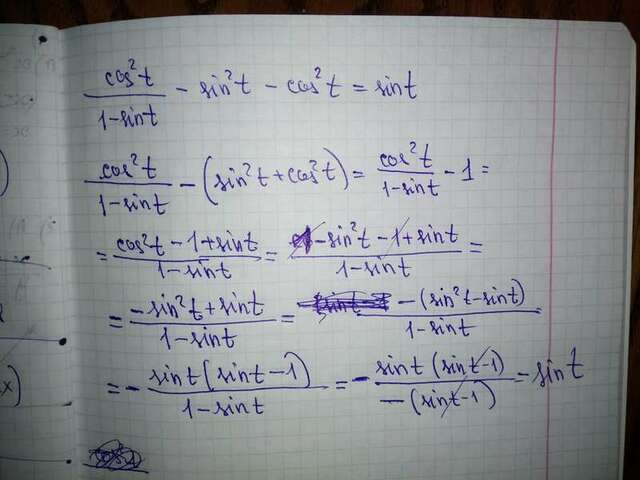 cos²t/(1-sint) - sin²t - cos²t = sint
cos²t/(1-sint) - (sin²t + cos²t) = cos²t/(1-sint) - 1 =
= (cos²t - 1 + sint)/(1-sint) = (1 - sin²t - 1 + sint)/(1-sint) =
= (-sin²t + sint)/(1-sint) = -(sin²t - sint)/(1-sint)
= - sint(sint-1)/(1-sint) = - sint(sint-1)/-(sint-1) - sint